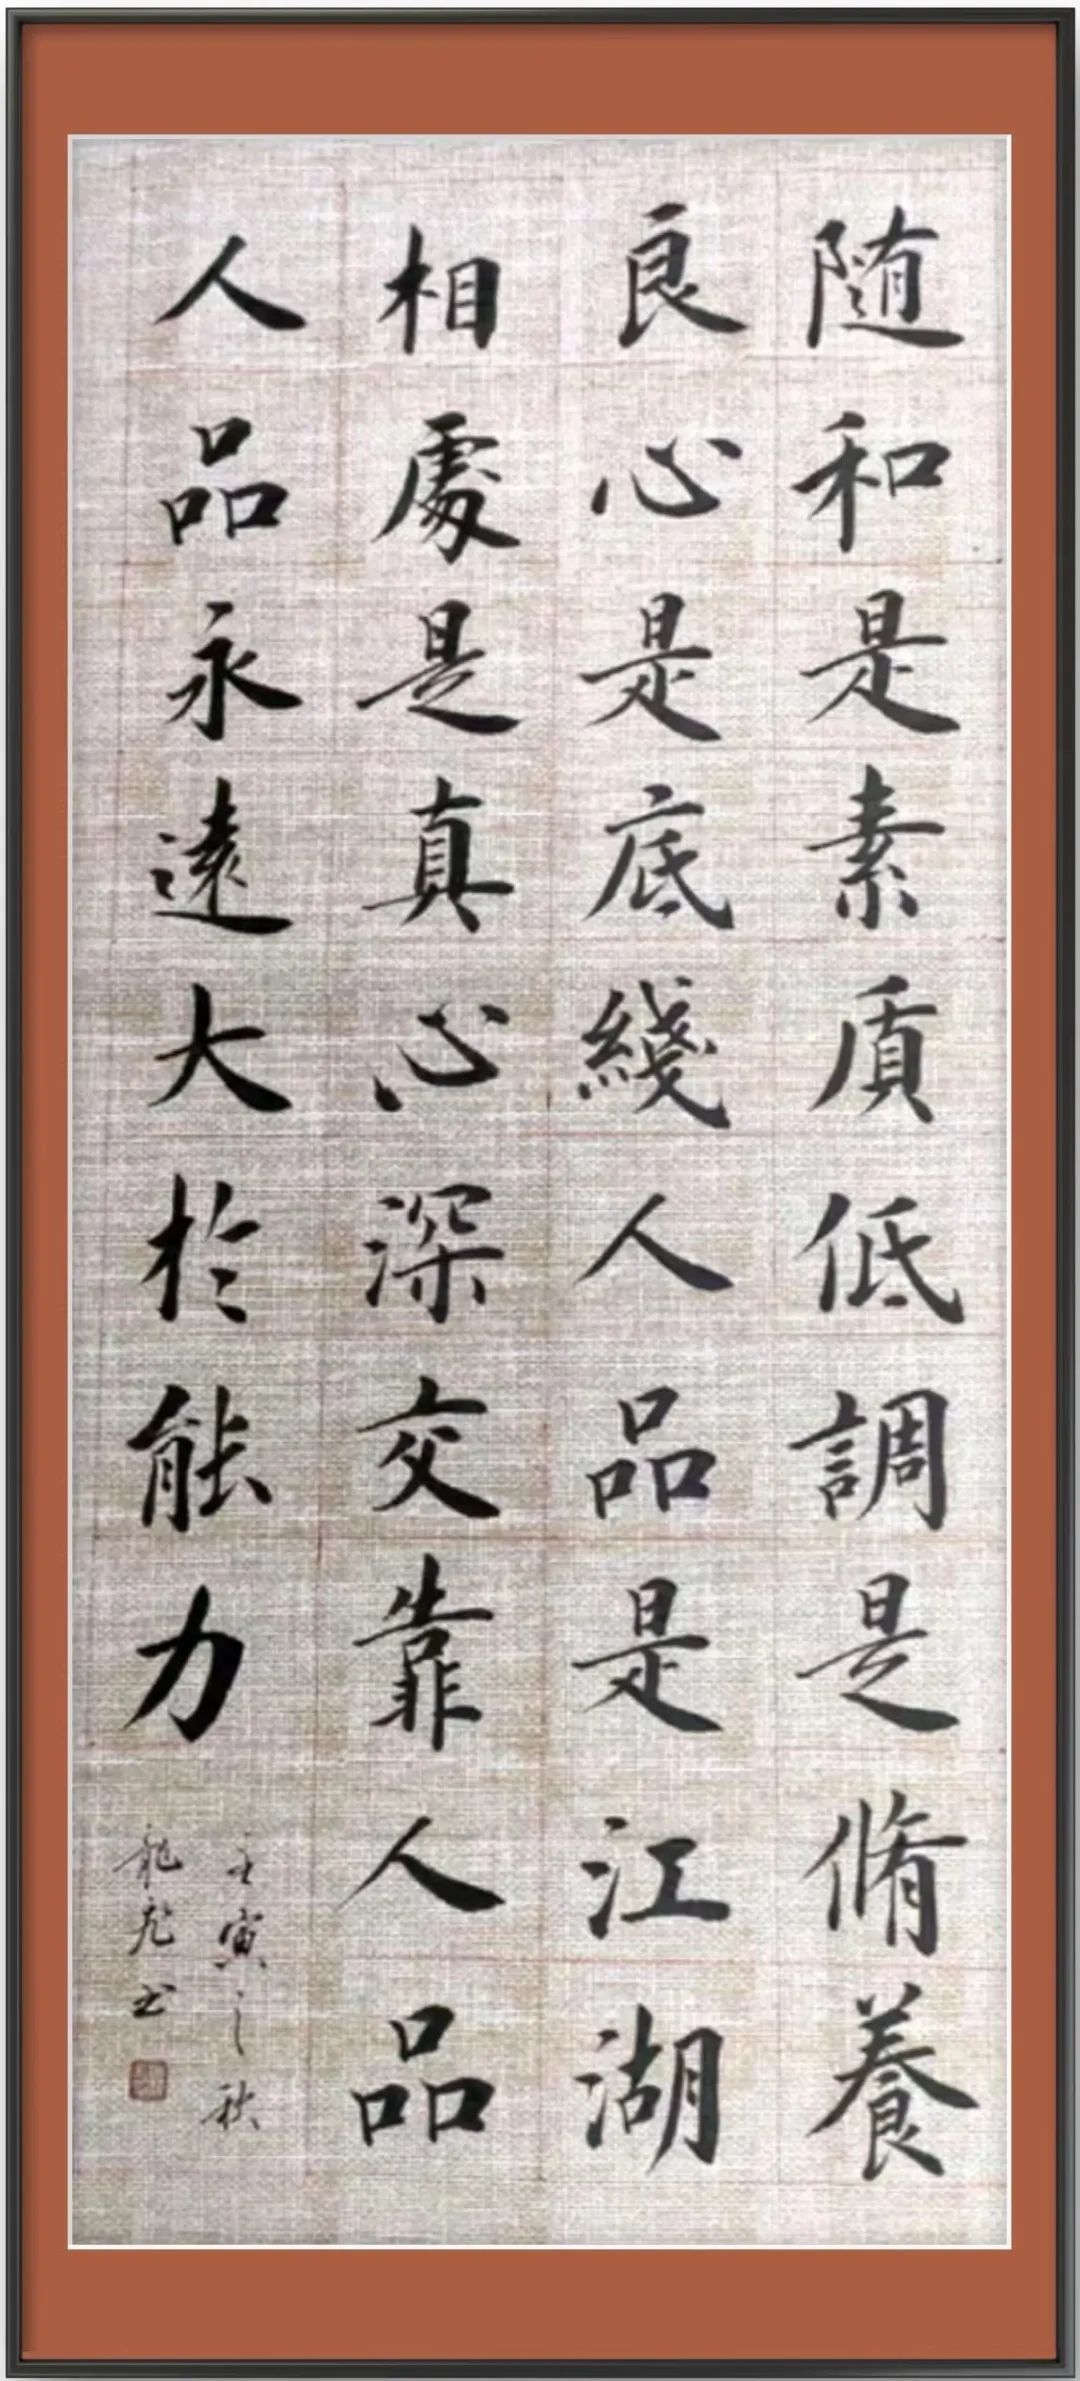 随和是素質低調是脩養
良心是底綫人品是江湖
相處是真心深交靠人品
人品永遠大於能力
壬寅之秋
龍彪書